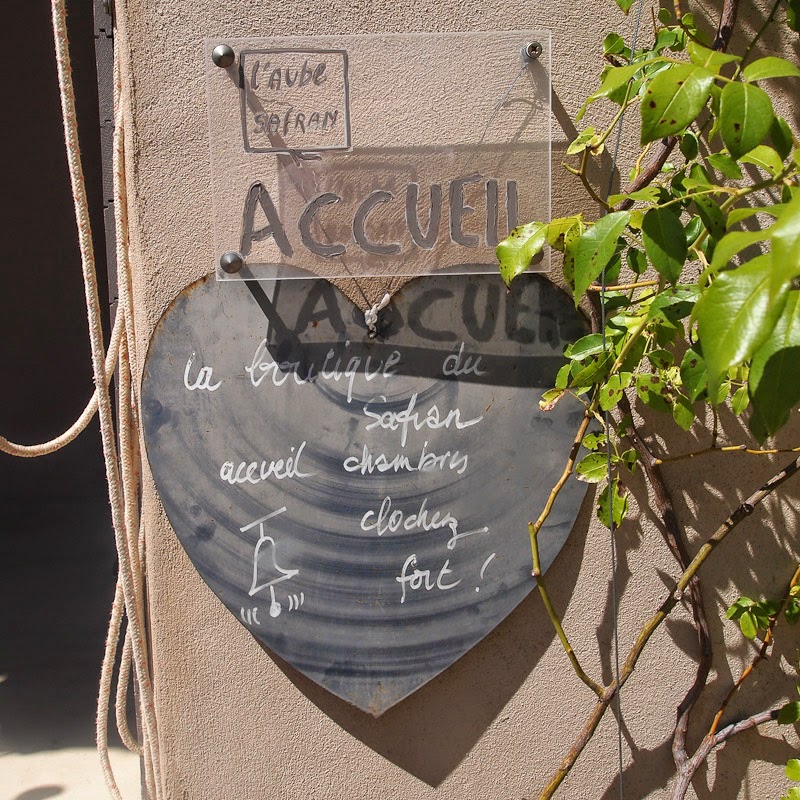 l'AUBE
SAFRAN
ACCUEIL
la boutique du
Safran
accueil chambres
clochez
fort !